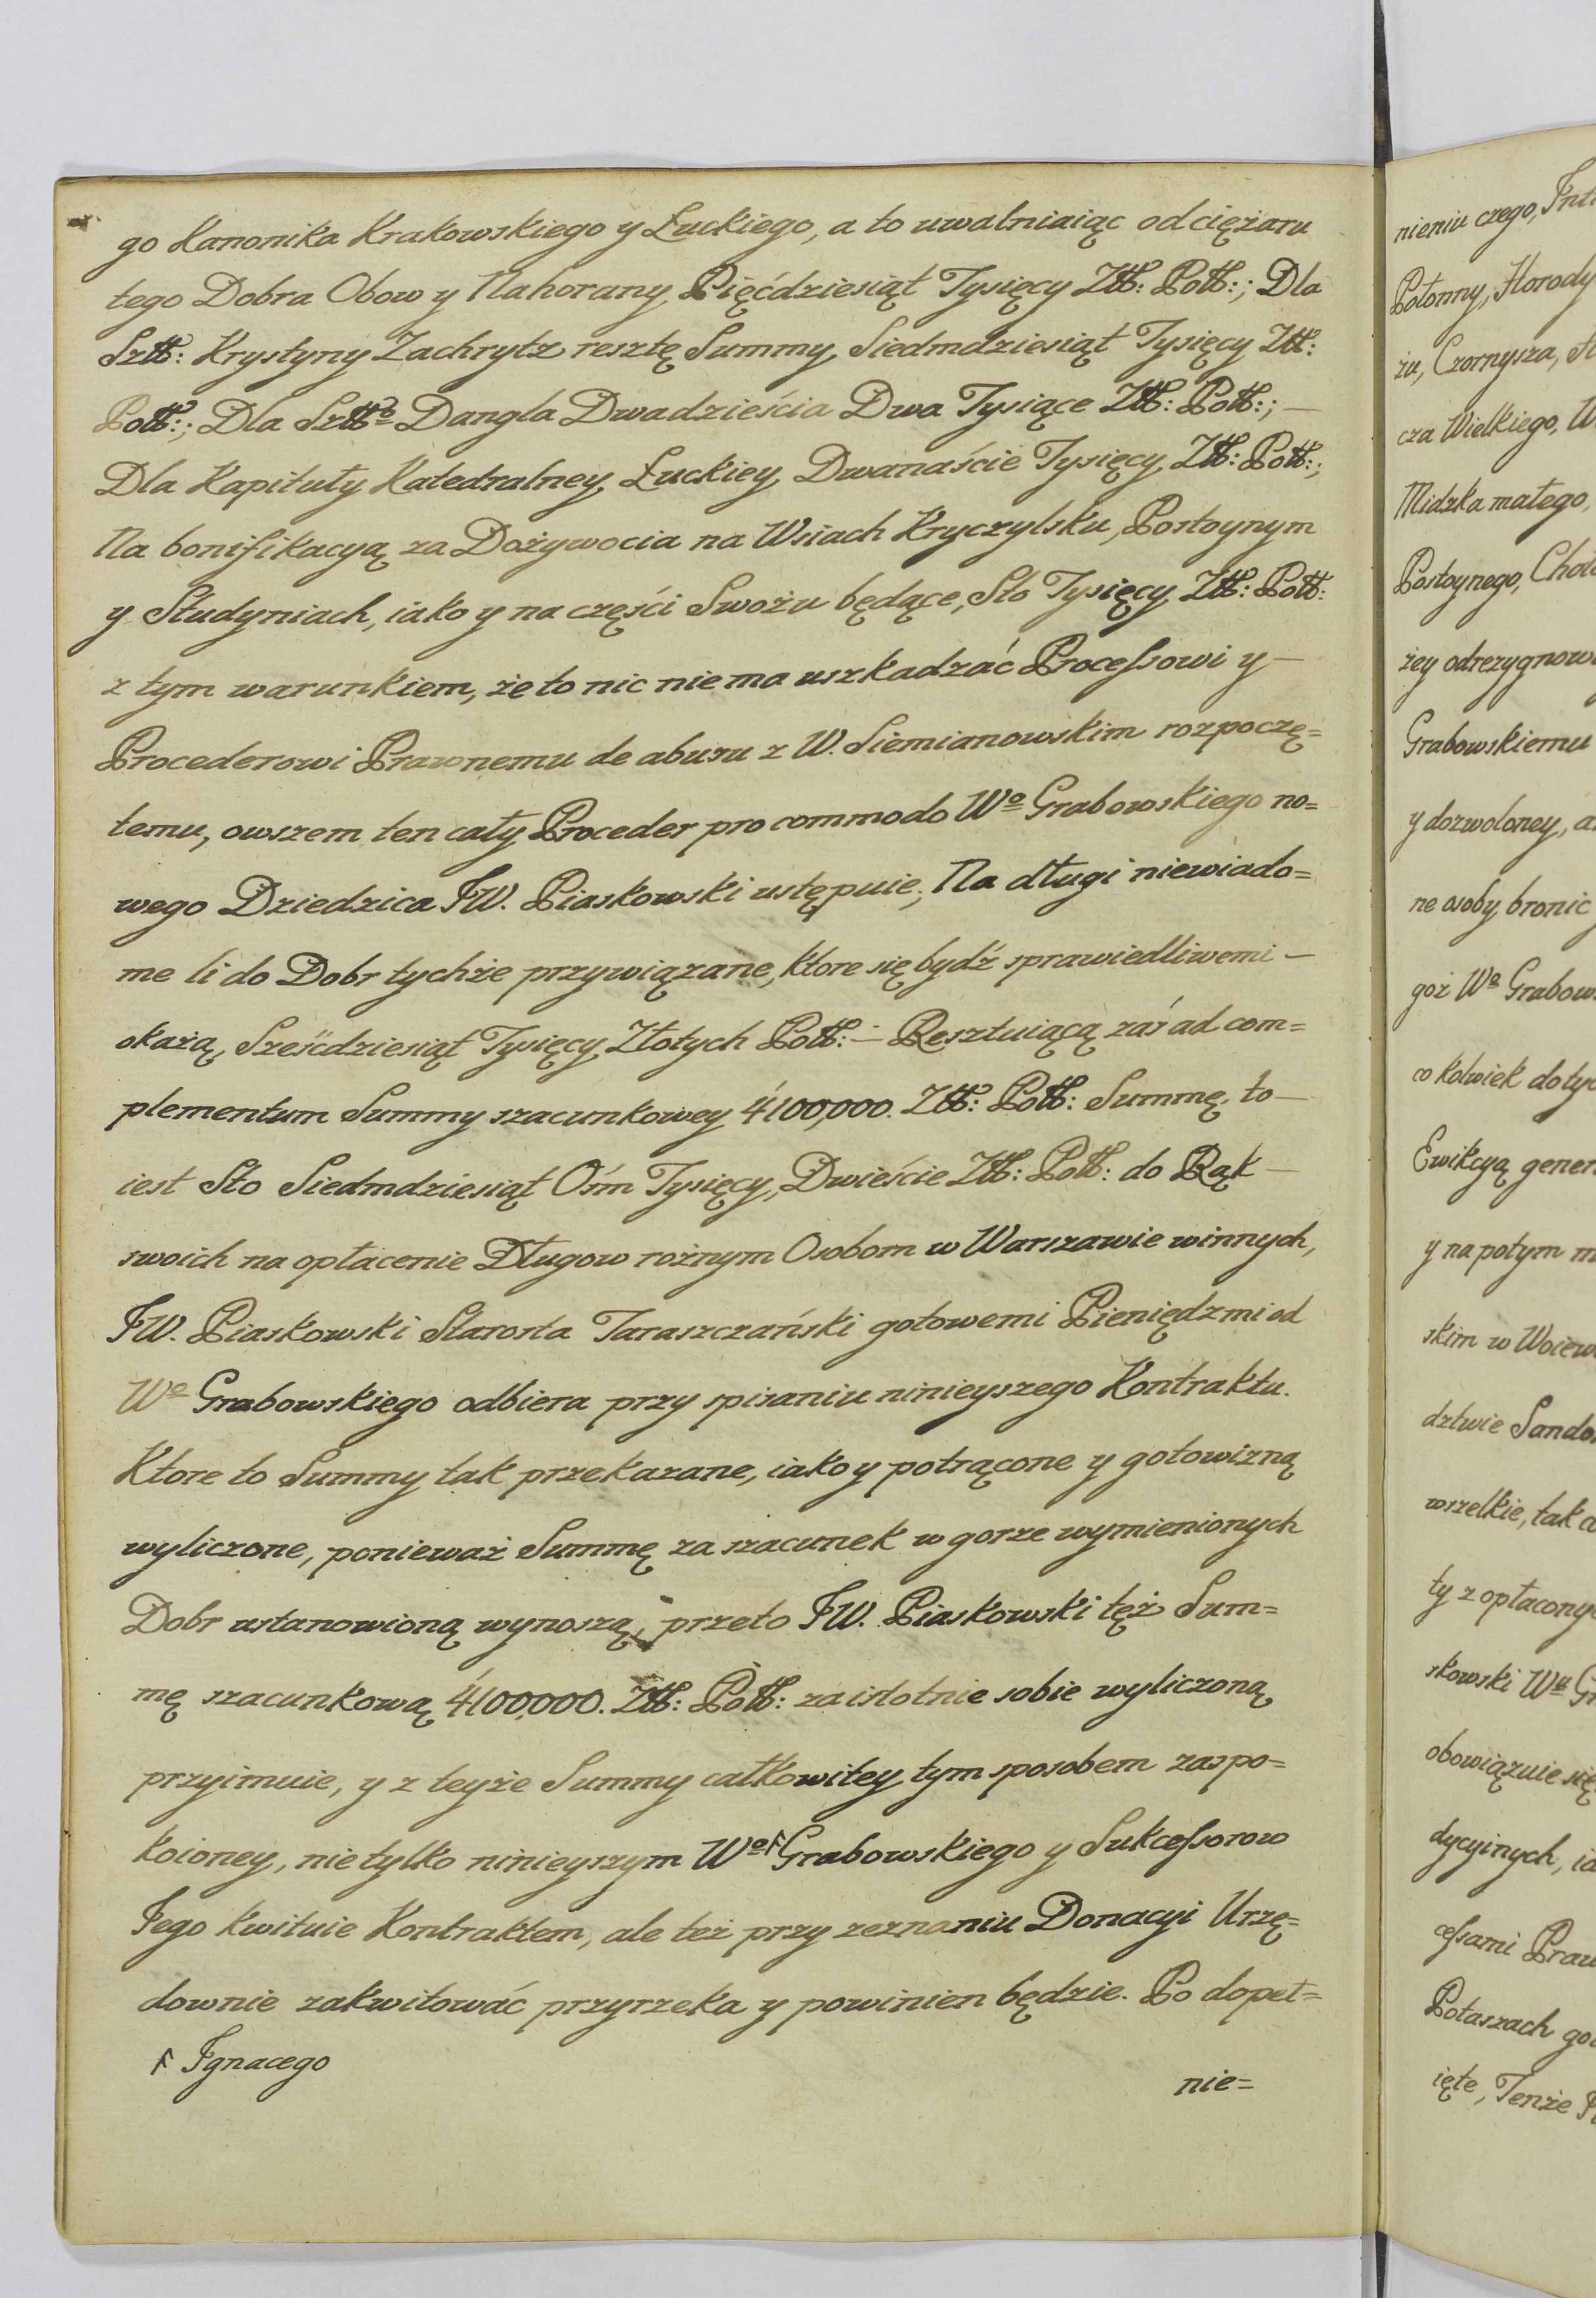 go Kanonika Krakowskiego y Łuckiego, a to uwalniaiąc od ciężaru
tego Dobra Obow y Nahorany, Pięćdziesiąt Tysięcy Złł: Poll:; Dla
Szll: Krystyny Zachrytz resztę Summy, Siedmdziesiąt Tysięcy Złł:
Poll:; Dla Szllo Dangla Dwadzieścia Dwa Tysiące Złł: Poll:; —
Dla Kapituły Katedralney Łuckiey Dwanaście Tysięcy Złł: Poll:;
Na bonifikacyą za Dożywocia na Wsiach Kryczylsku, Postoynym
y Studyniach, iako y na części Swożu będące, Sto Tysięcy Złł: Poll:
z tym warunkiem, że to nic nie ma uszkadzać Processowi y —
Procederowi Prawnemu de abusu z W. Siemianowskim rozpoczę=
temu, owszem ten cały Proceder pro commodo Wo Grabowskiego no=
wego Dziedzica JW. Piaskowski ustępuie; Na długi niewiado=
me li do Dobr tychże przywiązane, ktore się bydź sprawiedliwemi —
okażą, Sześćdziesiąt Tysięcy Złotych Poll: — Resztuiącą zaś ad com=
plementum Summy szacunkowey 4'100,000. Złł: Poll: Summę, to —
iest Sto Siedmdziesiąt Ośm Tysięcy, Dwieście Złł: Poll: do Rąk —
swoich na opłacenie Długow rożnym Osobom w Warszawie winnych,
JW. Piaskowski Starosta Taraszczański gotowemi Pieniędzmi od
Wo Grabowskiego odbiera przy spisaniu ninieyszego Kontraktu.
Ktore to Summy tak przekazane, iako y potrącone y gotowizną
wyliczone, ponieważ Summę za szacunek w gorze wymienionych
Dobr ustanowioną wynoszą, przeto JW. Piaskowski też Sum=
mę szacunkową 4'100,000. Złł: Poll: za istotnie sobie wyliczoną
przyimuie, y z teyże Summy całkowitey tym sposobem zaspo=
koioney, nie tylko ninieyszym Wo Grabowskiego y Sukcessorow
Jego kwituie Kontraktem, ale też przy zeznaniu Donacyi Urzę=
downie zakwitować przyrzeka y powinien będzie. Po dopeł=
Ignacego
nie=
nieniu czego,
Połonny, Horody
żu, Czornysza,
cza Wielkiego,
Midzka małego,
Postoynego,
żey odrezygnow
Grabowskiemu
y dozwoloney, a
ne osoby bronic
goż Wo Grabow
co kolwiek doty
Ewikcyą gener
y na potym m
skim w Woiew
dztwie Sando
wszelkie, tak
ty z opłacony
skowski Wu G
obowiązuie się
dycyinych, ia
cessami Praw
Potaszach go
ięte, Tenże